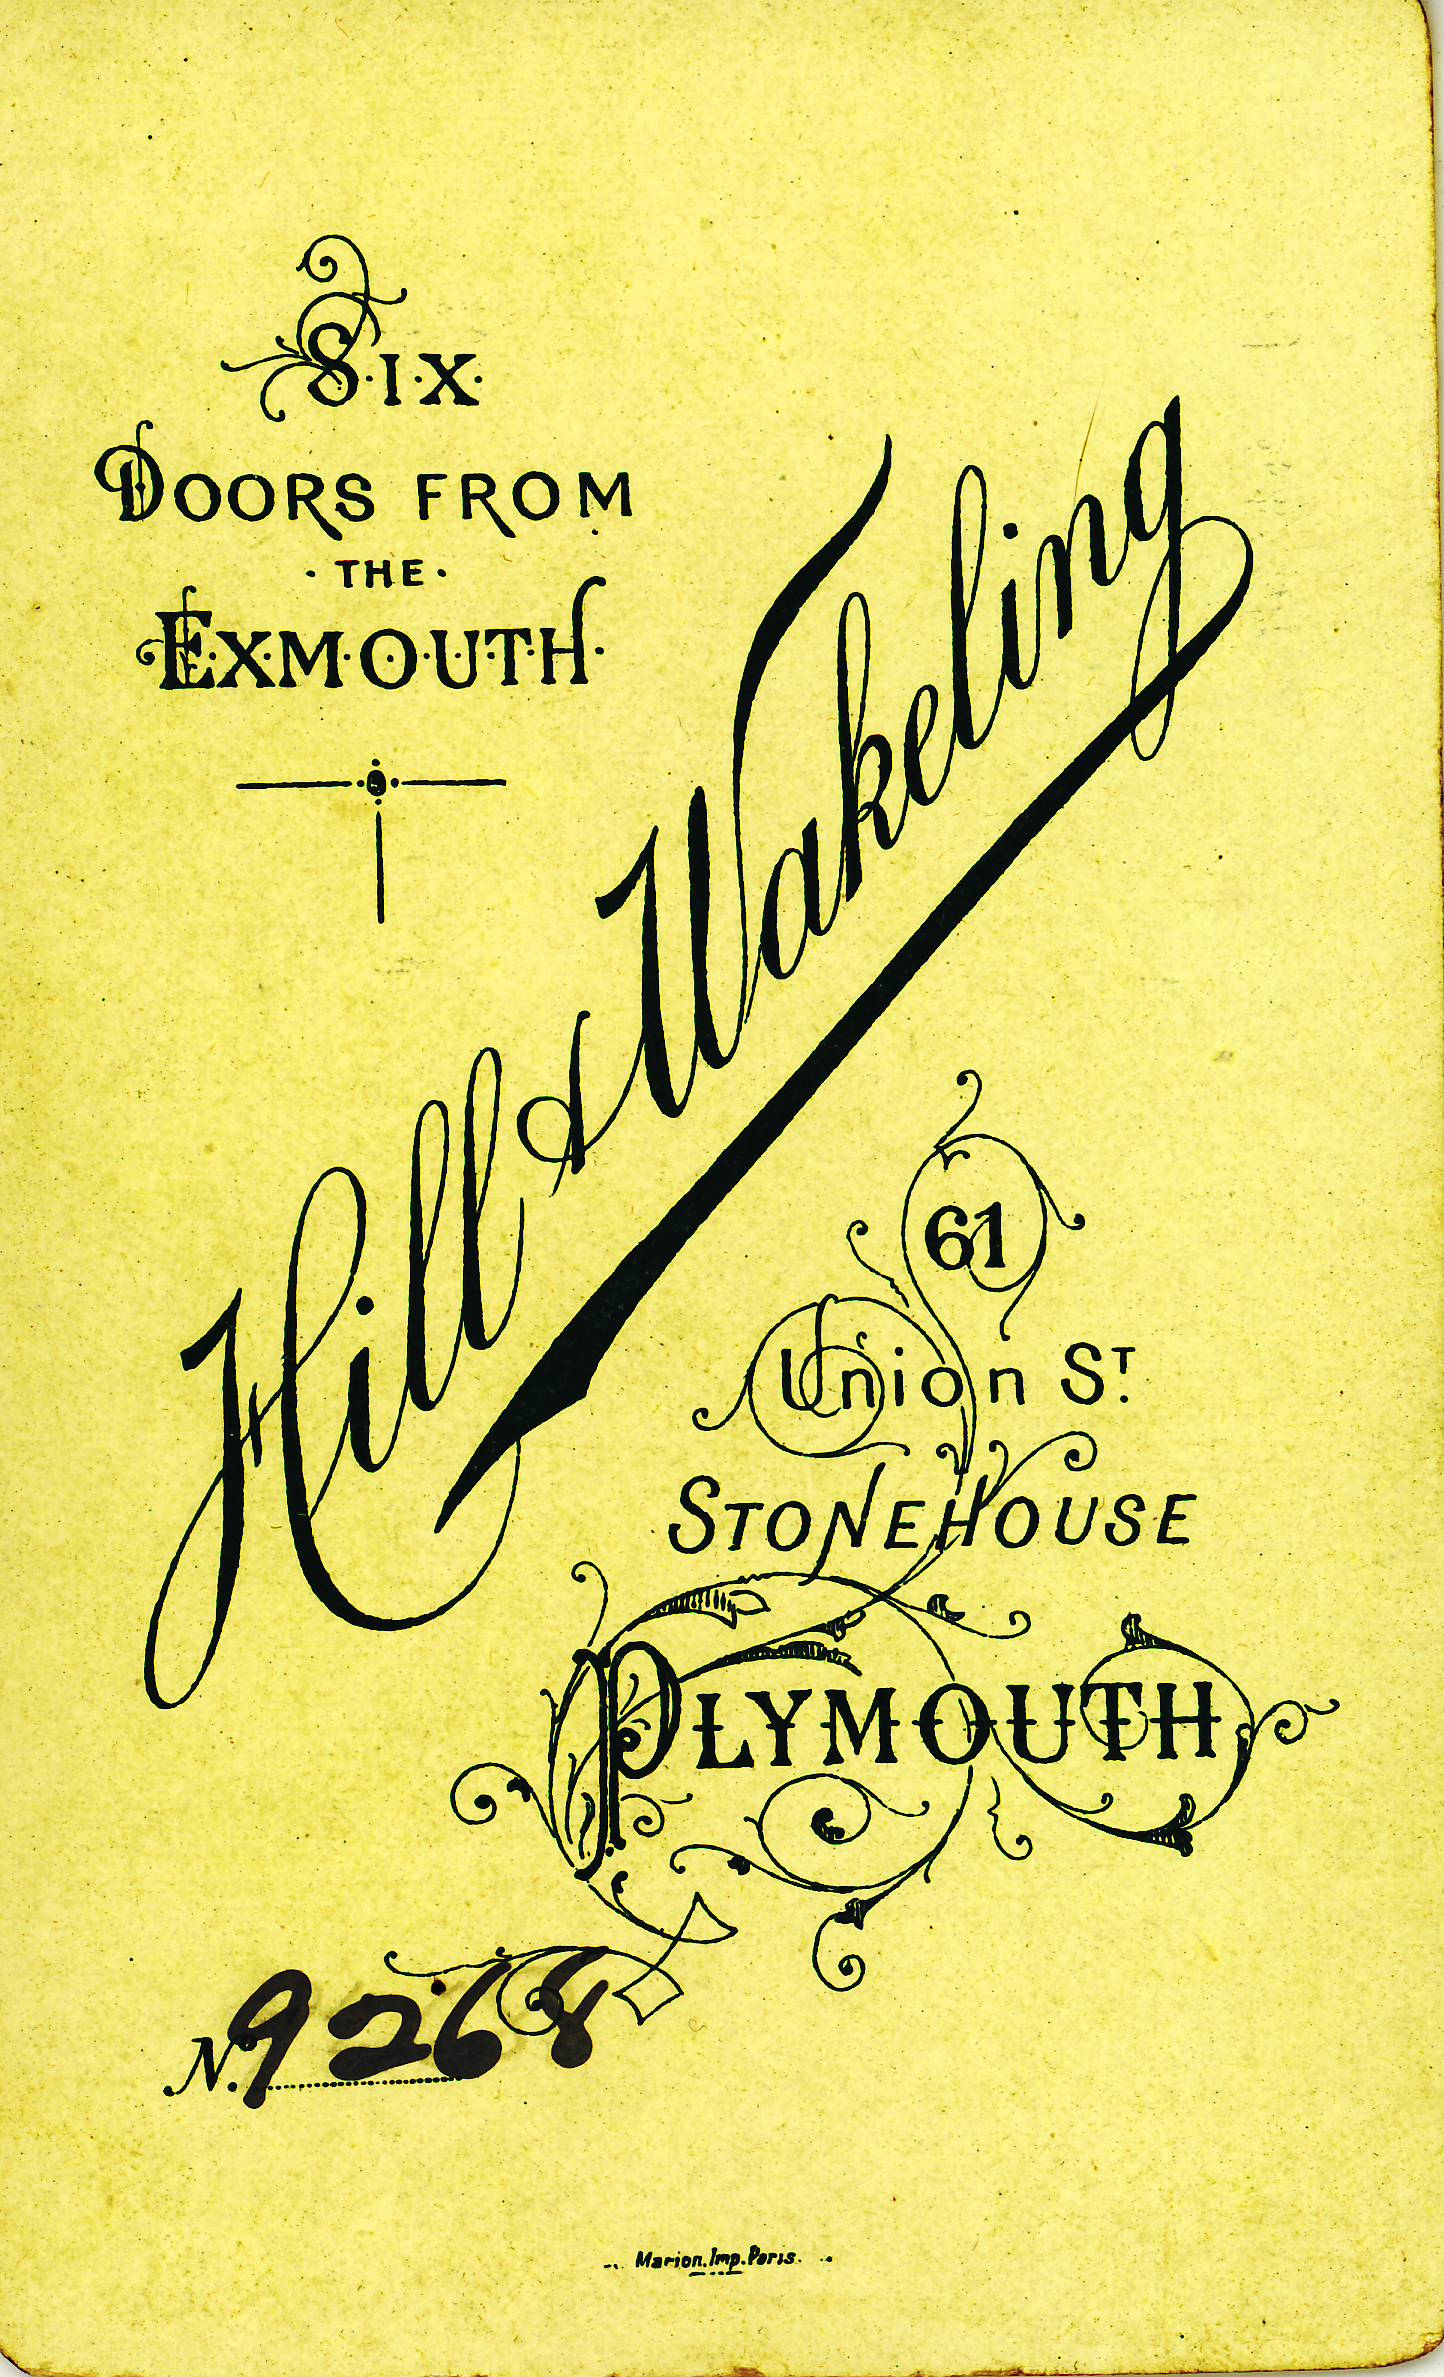 SIX
DOORS FROM
· THE ·
EXMOUTH
Hill & Wakeling
61
Union ST.
STONEHOUSE
PLYMOUTH
No. 9268
Marion. Imp. Paris.